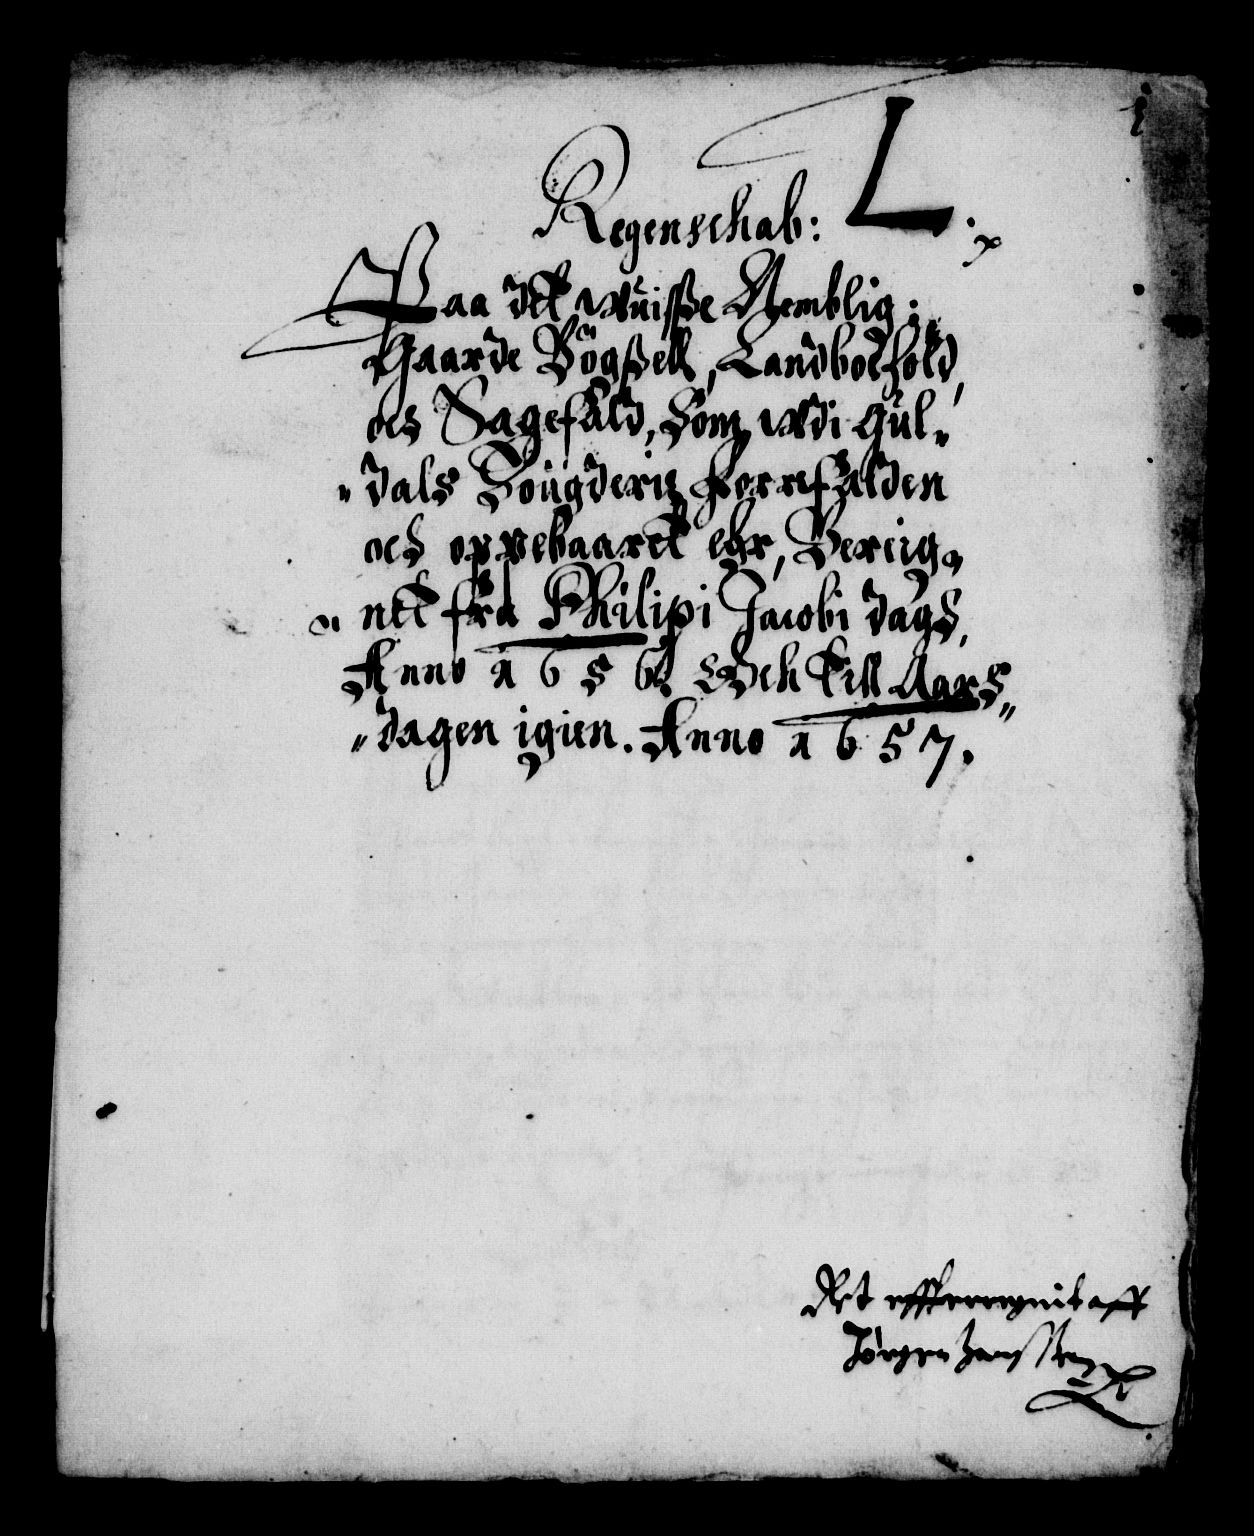 1
L.
Regenschab:
Paa dett wuisße Nemblig:
Gaarde Bögßell, Landbochold,
och Sagefald, Som wdi Gul„
„dals Fougderie forrefalden
och oppebaarett ehr, Bereig„
„nett fra Philipi Jacobi dags,
Anno 1656. Och till Aars„
„dagen igien. Anno 1657.
Ret effterregnit aff
Jørgen Hansßen